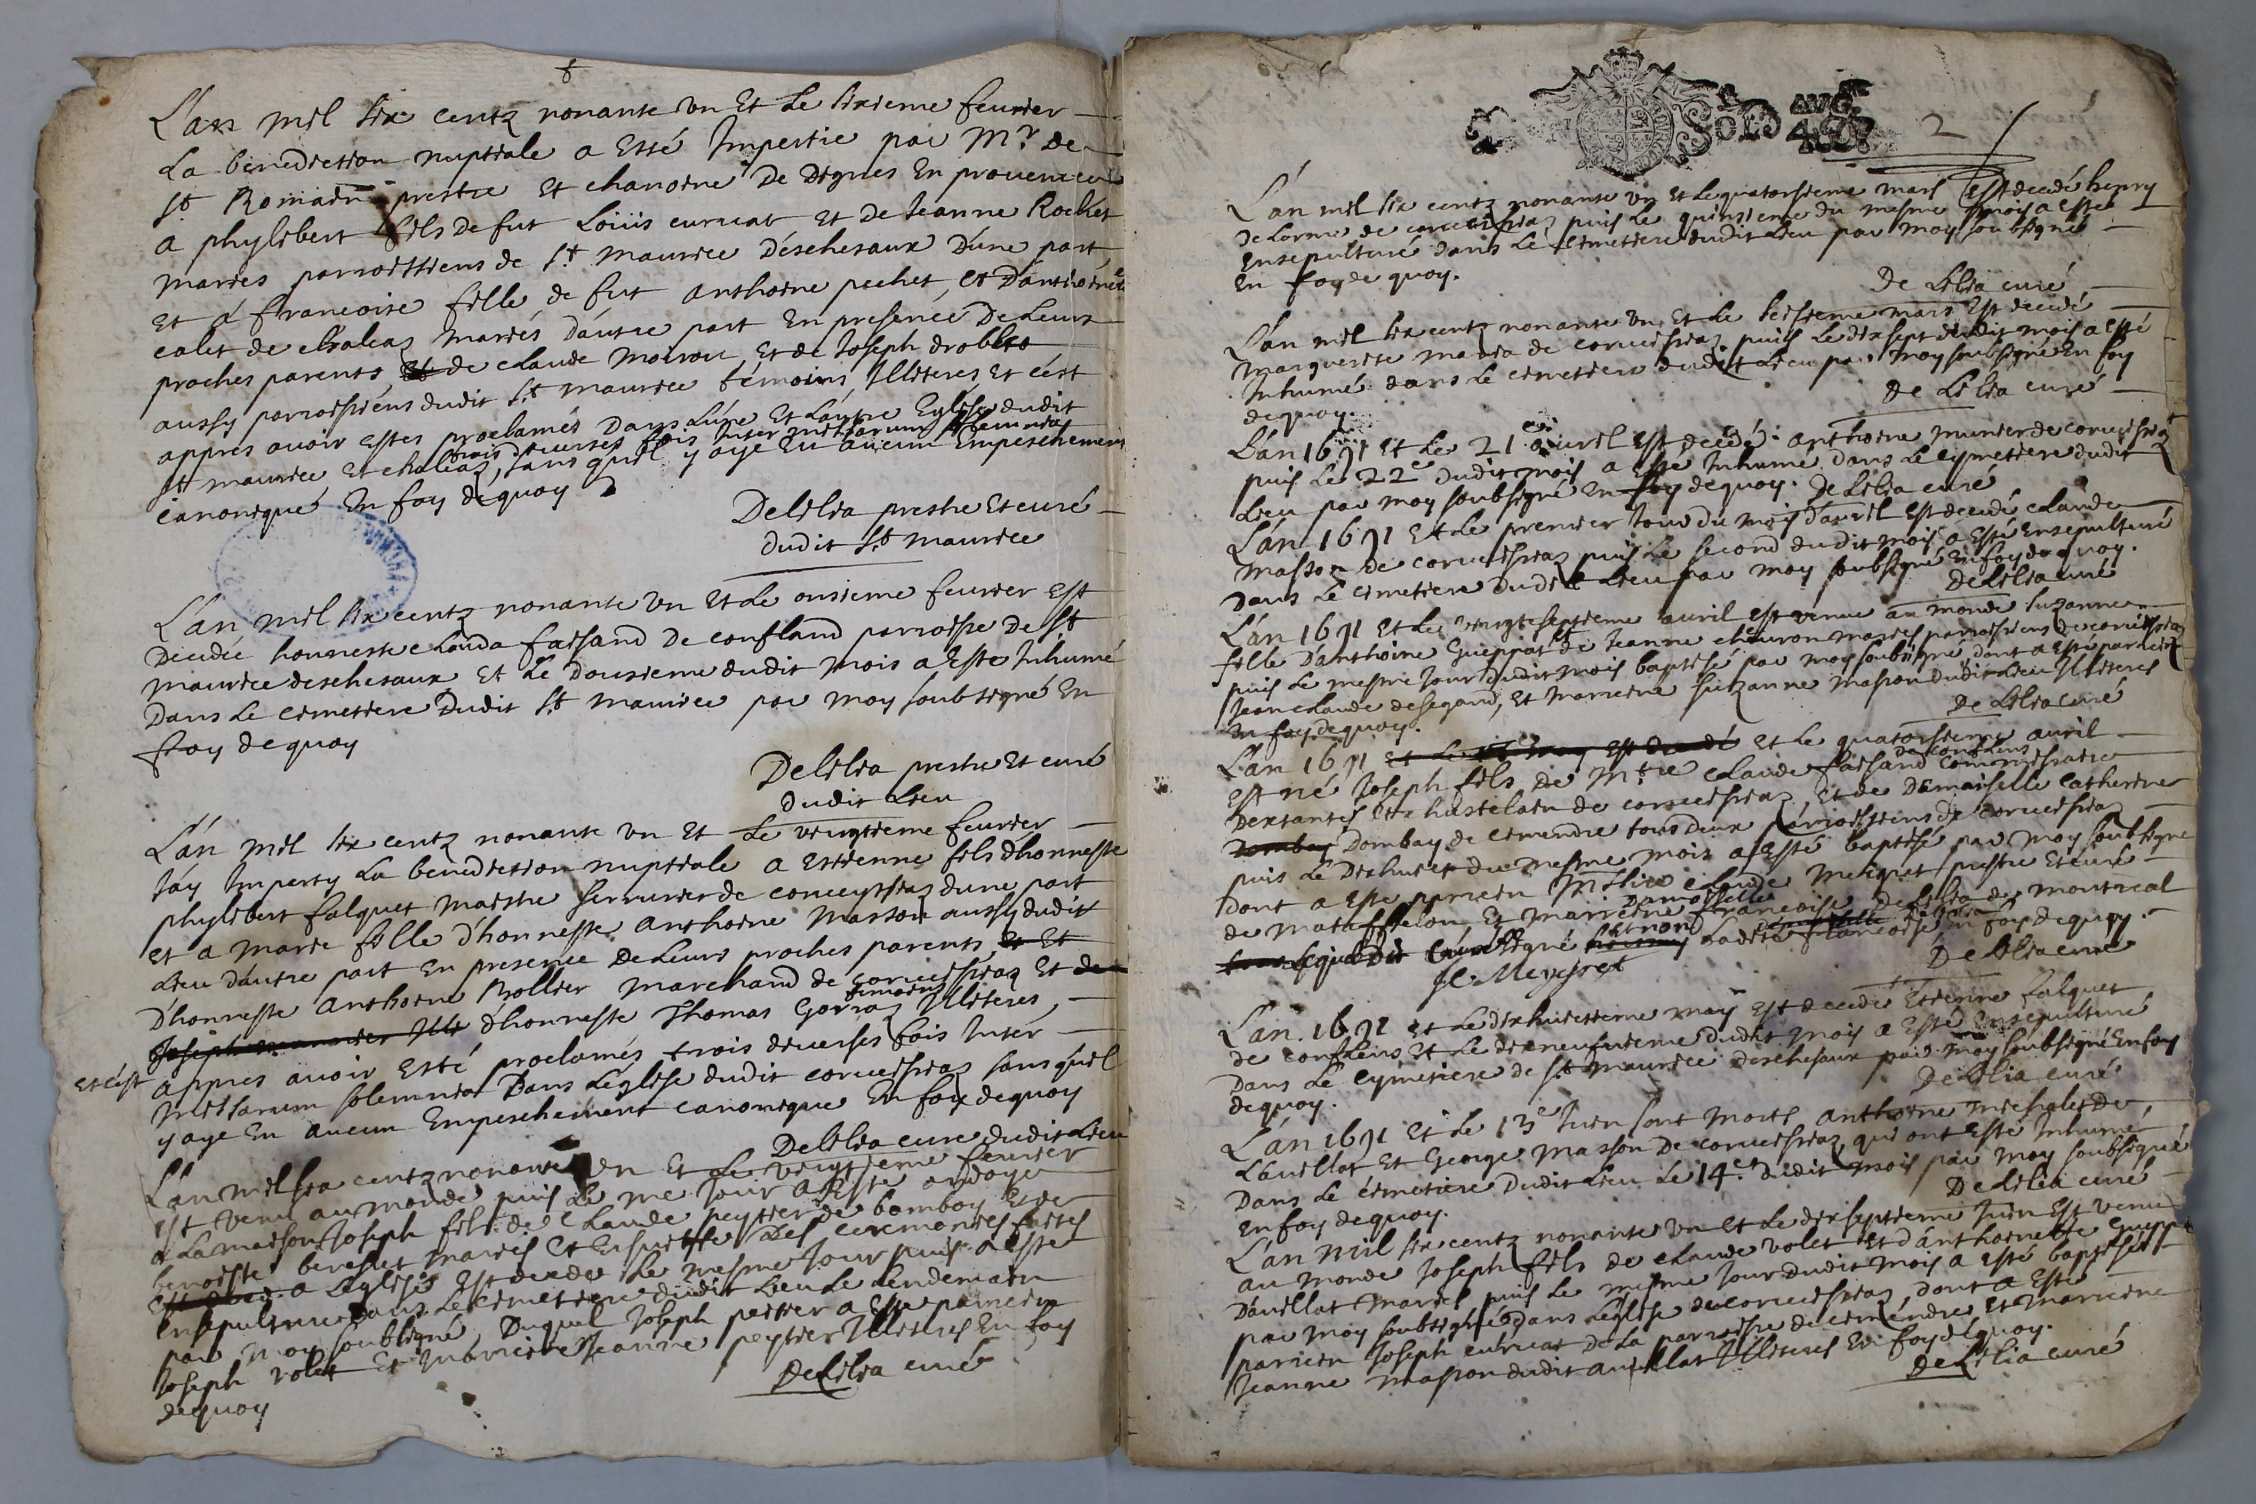 L'an mil six centz nonante un Et Le sixieme feurier
La benediction nuptiale a Esté Impertie par Mr. De
St. Romain prestre Et chanoine De Dignes En prouence
a phylibert fils de fut Loüis curuat et de Jeanne Rochet
maries parroissiens de St. maurice Deschesaux Dune part
Et a francoise fille de fut anthoine pechet, et D'anthoinete
calet de chaleaz Mariés d'autre part En presence De Leurs
proches parents, de claude moiroux, Et de Joseph drobleo
aussy parroissiens dudit St. maurice témoins Illiteres Et c'est
appres auoir estes proclamés Dans L'une Et L'autre Eglise dudit
trois diuerses fois Inter missarum solemnia
St maurice Et chaleaz, sans quil y aye Eu aucun Empeschement
canonique En foy de quoy
Delilia prestre Et curé
dudit St. Maurice
L'an mil six centz nonante Un Et Le onsieme feurier est
Decedée honneste clauda faisand De confland parroisse De St
maurice deschesaux Et Le Dousieme dudit mois a Esté Inhumé
Dans Le cimetiere Dudit St. maurice par moy soubsigné En
foy de quoy
Delilia prestre Et curé
dudit Lieu
L'an mil six centz nonante un Et Le vingtieme feurier
J'ay Imperty La benediction nuptiale a Estienne fils d'honneste
phylibert falquet maistre serrurier de conceyssiaz dune part
Et a Marie fille d'honneste anthoine Masson aussy dudit
Lieu d'autre part En presence De Leurs proches parents, Et
D'honneste anthoine Rollier marchand de corueissiaz Et
témoins
d'honneste Thomas Gorraz Illiteres,
Et c'est appres auoir Esté proclamés trois diuerses fois Inter
missarum solemnia Dans L'église dudit corueissiaz sans quil
y aye Eu aucun Empeschement canonique En foy de quoy
Delilia cure dudit Lieu
L'an mil six centz nonante un Et Le vingtieme feurier
est venu au monde puis Le me Jour a Esté ondoyé
a La maison Joseph fils de claude peytier de bombois Et de
benoiste maries Et Ensuitte Des ceremonies faites
a Leglise Est decede Le mesme Jour puis a Esté
Ensepulturé dans Le cimetiere dudit Lieu Le Lendemain
par moy soubsigné, Duquel Joseph peitier a Esté parrein
Joseph volet Et Marreine Jeanne peytier Illiteres En foy
de quoy
Delilia curé
SOLD
2
L'an mil six centz nonante un Et Le quatorsieme mars Est decedé henry
De Lorme de corueissiaz puis Le quinsieme du mesme mois a Esté
Ensepulturé dans Le cimetiere dudit Lieu par moy soubsigné
En foy de quoy.
De Lilia curé
L'an mil six centz nonante un, Et Le seisieme mars Est decedé
Marguerite Maria de corueissiaz puis Le dixsept dudit mois a Esté
Inhumé dans Le cimetiere dudit Lieu par moy soubsigné En foy
de quoy.
De Lilia curé
L'an 1691 Et Le 21e auril Est decedé anthoine munier de corueissiaz
puis Le 22e dudit mois a Esté Inhumé dans Le cymetiere dudit
Lieu par moy soubsigné En foy de quoy. De Lilia curé
L'an 1691 Et Le premier Jour du mois d'auril Est decedé claude
Masson de corueissiaz puis Le second dudit mois a Esté Ensepulturé
Dans Le cimetiere dudit Lieu par moy soubsigné En foy de quoy.
De Lilia curé
L'an 1691 Et Le vingtseptieme auril est venue au monde suzanne
fille D'anthoine Gueppat Et de Jeanne cheuron maries parroissiens de corueissiaz
puis Le mesme Jour dudit mois baptisé par moy soubsigné dont a Esté parrein
Jean claude desegand, Et marreine suzanne masson dudit Lieu Illiteres
En foy de quoy.
De Lilia curé
L'an 1691 Et Le quatorsieme auril
de conflens
est né Joseph fils De Mtre claude faisand commissaire
Dextantes Et chastelain de corueissiaz, Et de Demoiselle catherine
Dombay de cimendre tous deux parroissiens de corueissiaz
puis Le Dixhuict du mesme mois a Esté baptisé par moy soubsigné
dont a Esté parrein Mssire claude Meyniet prestre Et curé
Damoiselle
de Mataffelon, Et Marreine francoise Delilia de Montreal
Et non
signé Ladite francoise En foy de quoy.
De Lilia curé
L'an 1691 Et Le dixhuictieme may Est decedé Etienne falquet
de conflens Et Le dixneufuieme dudit mois a Esté Ensepulturé
Dans Le cymetiere de St. maurice deschesaux par moy soubsigné En foy
de quoy.
De Lilia curé
L'an 1691 Et Le 13e Juin sont morts anthoine michalet De
Lauillat Et George Masson De corueissiaz qui ont Esté Inhumés
Dans Le cimetiere Dudit Lieu Le 14e. Dudit mois par moy soubsigné
En foy de quoy.
De Lilia curé
L'an Mil six centz nonante un Et Le dixseptieme Juin Est venu
au monde Joseph fils de claude volet Et d'anthoinette Gueppat
Dauillat Maries puis Le mesme Jour dudit mois a Esté baptisé
par moy soubsigné Dans L'eglise de corueissiaz, dont a Esté
parrein Joseph curuat De La parroisse de cimendre Et Marreine
Jeanne masson dudit auillat Illiteres En foy de quoy.
De Lilia curé